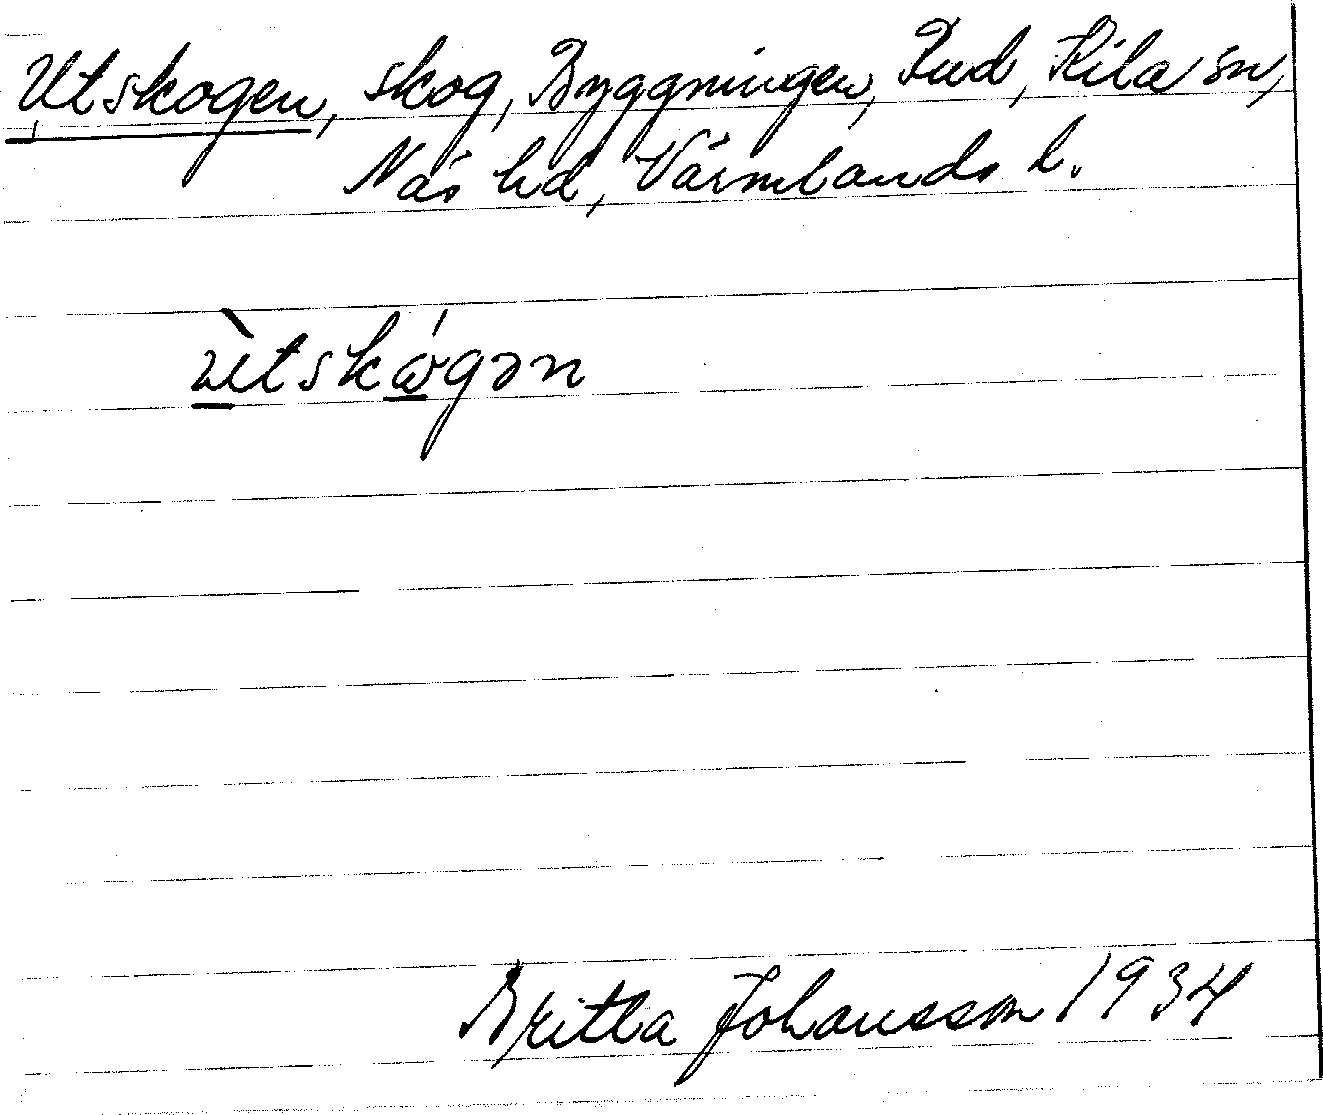 Utskogen, skog, Byggningen, Rud, Kila sn,
Näs hd, Värmlands l.
ùtskógən
Britta Johansson 1934